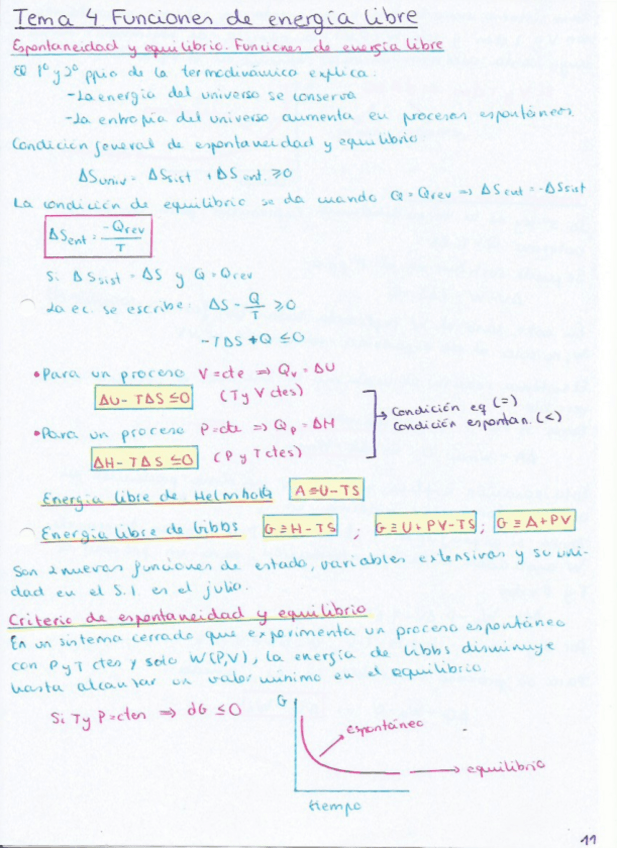 Tema 4 Funciones de energía libre
Espontaneidad y equilibrio. Funciones de energía libre
El 1º y 2º ppio de la termodinámica explica:
-La energía del universo se conserva
-La entropía del universo aumenta en procesos espontáneos.
Condición general de espontaneidad y equilibrio
ΔSuniv = ΔSsist + ΔSent. ≥0
La condición de equilibrio se da cuando Q = Qrev ⇒ ΔSent = -ΔSsist
ΔSent = -Qrev/T
Si ΔSsist = ΔS y Q = Qrev
La ec. se escribe: ΔS - Q/T ≥0
-TΔS + Q ≤0
•Para un proceso V=cte ⇒ Qv = ΔU
ΔU - TΔS ≤0 (T y V ctes)
→ Condición eq (=)
Condición espontan. (<)
•Para un proceso P=cte ⇒ Qp = ΔH
ΔH - TΔS ≤0 (P y T ctes)
Energía libre de Helmholtz A≡U-TS
Energía libre de Gibbs G≡H-TS ; G≡U+PV-TS ; G≡A+PV
Son 2 nuevas funciones de estado, variables extensivas y su uni-
dad en el S.I es el julio.
Criterio de espontaneidad y equilibrio
En un sistema cerrado que experimenta un proceso espontáneo
con P y T ctes y solo W(P,V), la energía de Gibbs disminuye
hasta alcanzar un valor mínimo en el equilibrio.
Si T y P=ctes ⇒ dG ≤0
G
espontáneo
equilibrio
tiempo
11